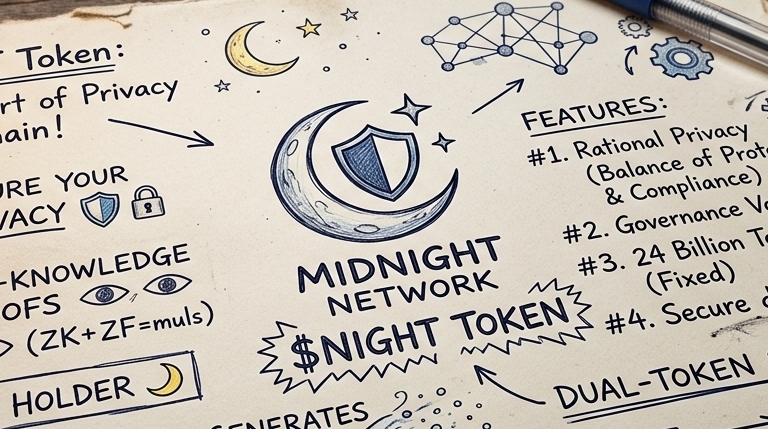 Token:
of Privacy
YOUR
-KNOWLEDGE
(ZK+ZF=muls)
HOLDER
GENERATES
MIDNIGHT
NETWORK
$NIGHT TOKEN
FEATURES:
#1. Rational Privacy
(Balance of
& Compliance)
#2. Governance
#3. 24 Billion
(Fixed)
#4. Secure
DUAL-TOKEN